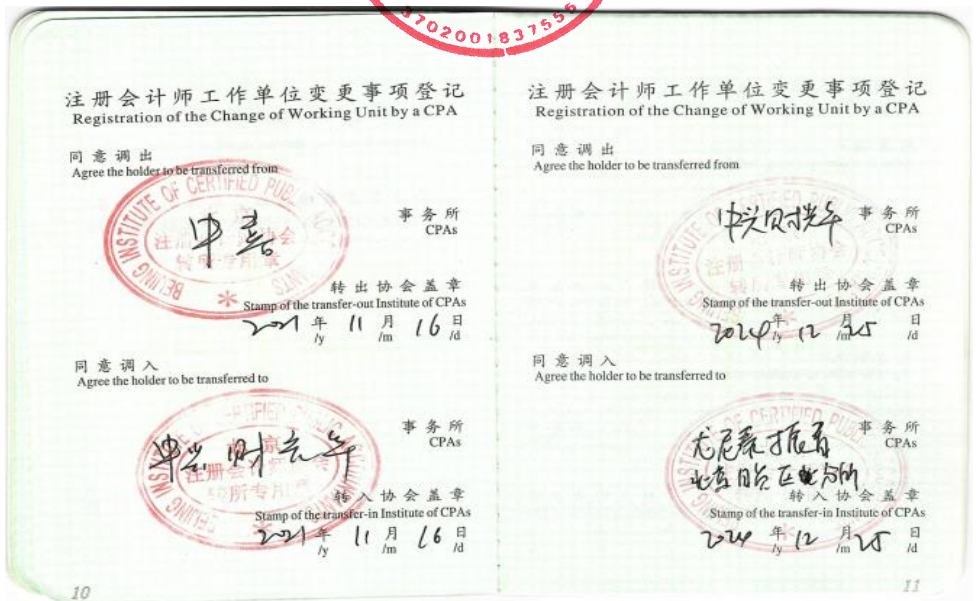 3702001837555
注册会计师工作单位变更事项登记
Registration of the Change of Working Unit by a CPA
同意调出
Agree the holder to be transferred from
BEIJING INSTITUTE OF CERTIFIED PUBLIC
中嘉
事务所
CPAs
转出协会盖章
Stamp of the transfer-out Institute of CPAs
2021 年 11 月 16 日
/y /m /d
同意调入
Agree the holder to be transferred to
中兴财光华
事务所
CPAs
转所专用章
转入协会盖章
Stamp of the transfer-in Institute of CPAs
2021 年 11 月 16 日
/y /m /d
10
注册会计师工作单位变更事项登记
Registration of the Change of Working Unit by a CPA
同意调出
Agree the holder to be transferred from
中兴财光华
事务所
CPAs
转出协会盖章
Stamp of the transfer-out Institute of CPAs
2024 年 12 月 25 日
/y /m /d
同意调入
Agree the holder to be transferred to
尤尼泰振青
事务所
CPAs
转入协会盖章
Stamp of the transfer-in Institute of CPAs
2024 年 12 月 25 日
/y /m /d
11